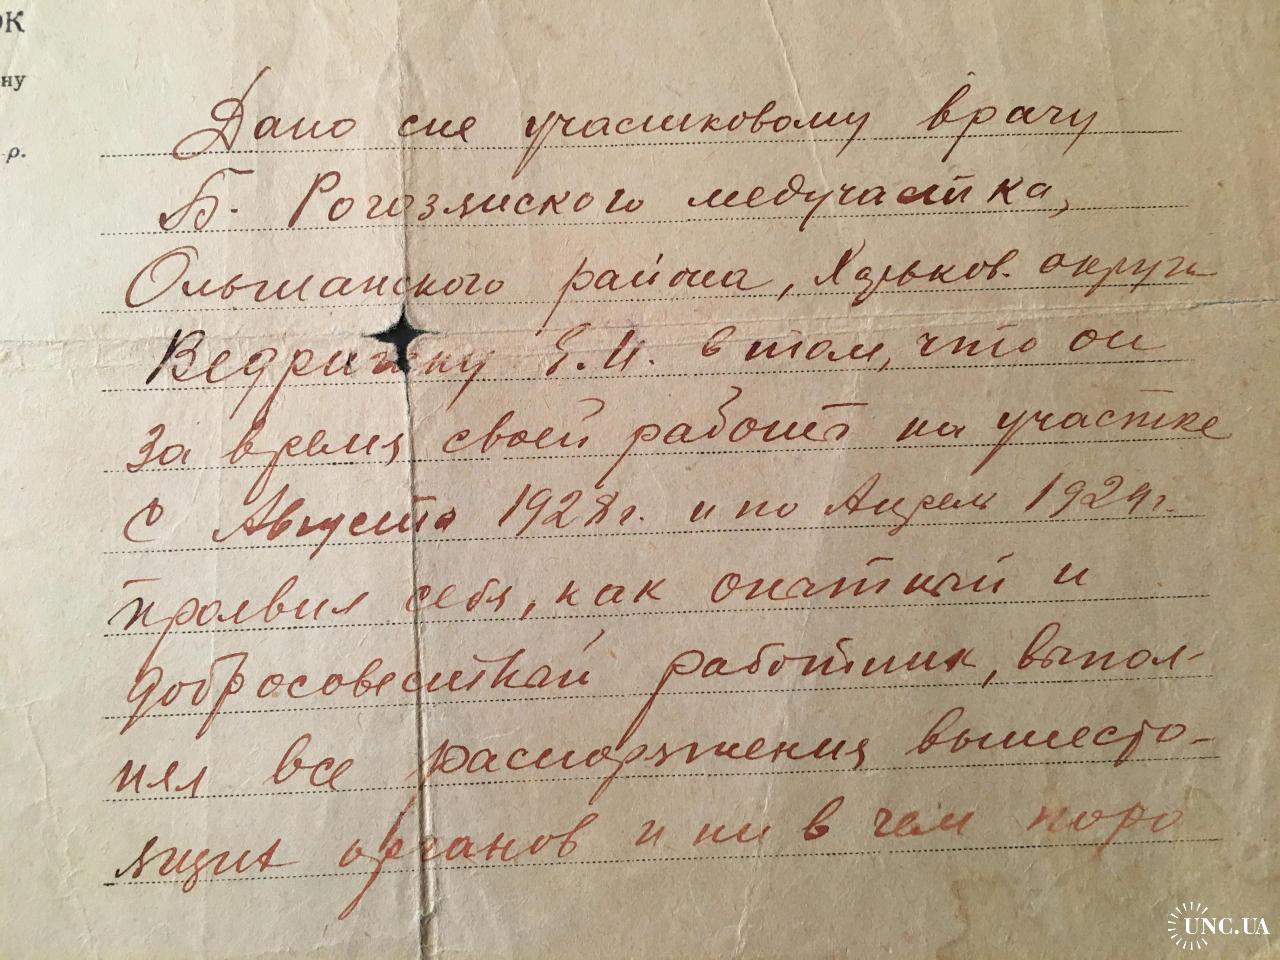 ОК
ну
р.
Дано сие участковому врачу
Б. Рогозянского медучастка,
Ольшанского района, Харьков. округи
Ведри ку Е.И. в том, что он
за время своей работы на участке
с Августа 1928 г. и по Апрель 1929 г.
проявил себя, как опытный и
добросовестный работник, выпол-
нял все распоряжения вышесто-
ящих органов и ни в чем поро
UNC.UA